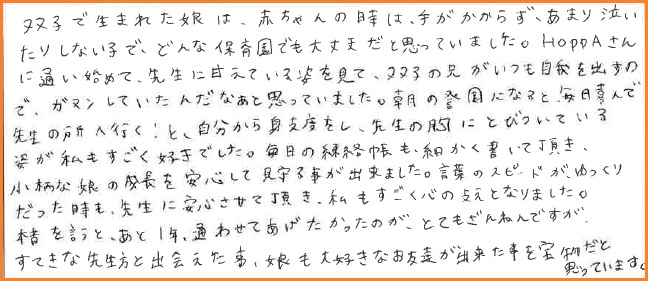 双子で生まれた娘は、赤ちゃんの時は、手がかからず、あまり泣い
たりしない子で、どんな保育園でも大丈夫だと思っていました。HOPPAさん
に通い始めて、先生に甘えている姿を見て、双子の兄がいつも自我を出すの
で、ガマンしていたんだなあと思っていました。朝の登園になると、毎日喜んで
先生の所へ行く!と、自分から身支度をし、先生の胸にとびついている
姿が私もすごく好きでした。毎日の連絡帳も、細かく書いて頂き、
小柄な娘の成長を安心して見守る事が出来ました。言葉のスピードがゆっくり
だった時も、先生に安心させて頂き、私もすごく心の支えとなりました。
本音を言うと、あと1年、通わせてあげたかったのが、とてもざんねんですが、
すてきな先生方と出会えた事、娘も大好きなお友達が出来た事を宝物だと
思っています。